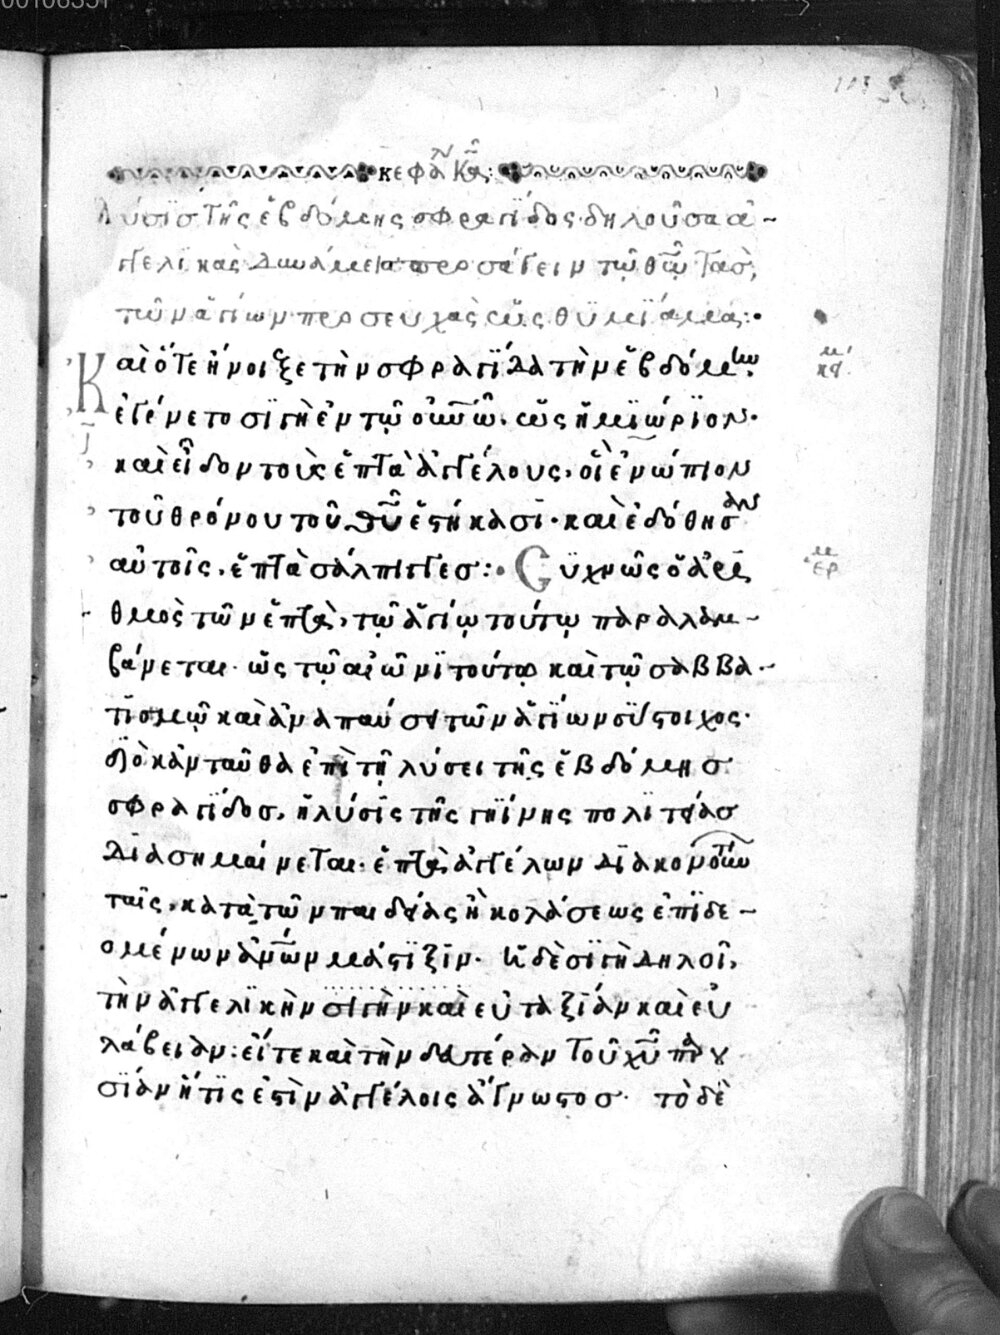 κεφα κα:
λύσις τῆς ἑβδόμης σφραγῖδος· δηλοῦσα ἀ-
γγελικὰς δυνάμεις προσάγειν τῷ θῶ τὰς
τῶν ἁγίων προσευχὰς ὡς θυμιάματα:·
Καὶ ὅτε ἤνοιξε τὴν σφραγίδα τὴν ἑβδόμην·
ἐγένετο σιγὴ ἐν τῷ οὐνῶ· ὡς ἡμιώριον·
καὶ εἶδον τοὺς ἑπτὰ ἀγγέλους, οἳ ἐνώπιον
τοῦ θρόνου τοῦ θῦ ἑστήκασι· καὶ ἐδόθησαν
αὐτοῖς, ἑπτὰ σάλπιγγες:· Συχνῶς ὁ ἀρι
θμὸς τῶν ἑπτὰ, τῷ ἁγίῳ τούτῳ παραλαμ-
βάνεται· ὡς τῷ αἰῶνι τούτω καὶ τῷ σαββα-
τισμῷ καὶ ἀναπαύσει τῶν ἁγίων σύστοιχος·
διὸ κἀνταῦθα ἐπὶ τῇ λύσει τῆς ἑβδόμης
σφραγῖδος, ἡ λύσις τῆς γηΐνης πολιτείας
διασημαίνεται· ἑπτὰ ἀγγέλων διακονούντων
ταῖς, κατὰ τῶν παιδείας ἢ κολάσεως ἐπιδε-
ομένων ἀνῶν μάστιξιν· ἡ δὲ σιγὴ δηλοῖ,
τὴν ἀγγελικὴν σιγὴν καὶ εὐταξίαν καὶ εὐ
λάβειαν: εἴτε καὶ τὴν δευτέραν τοῦ χῦ παρου
σίαν ἥτις ἐστὶν ἀγγέλοις ἄγνωστος· τὸ δὲ